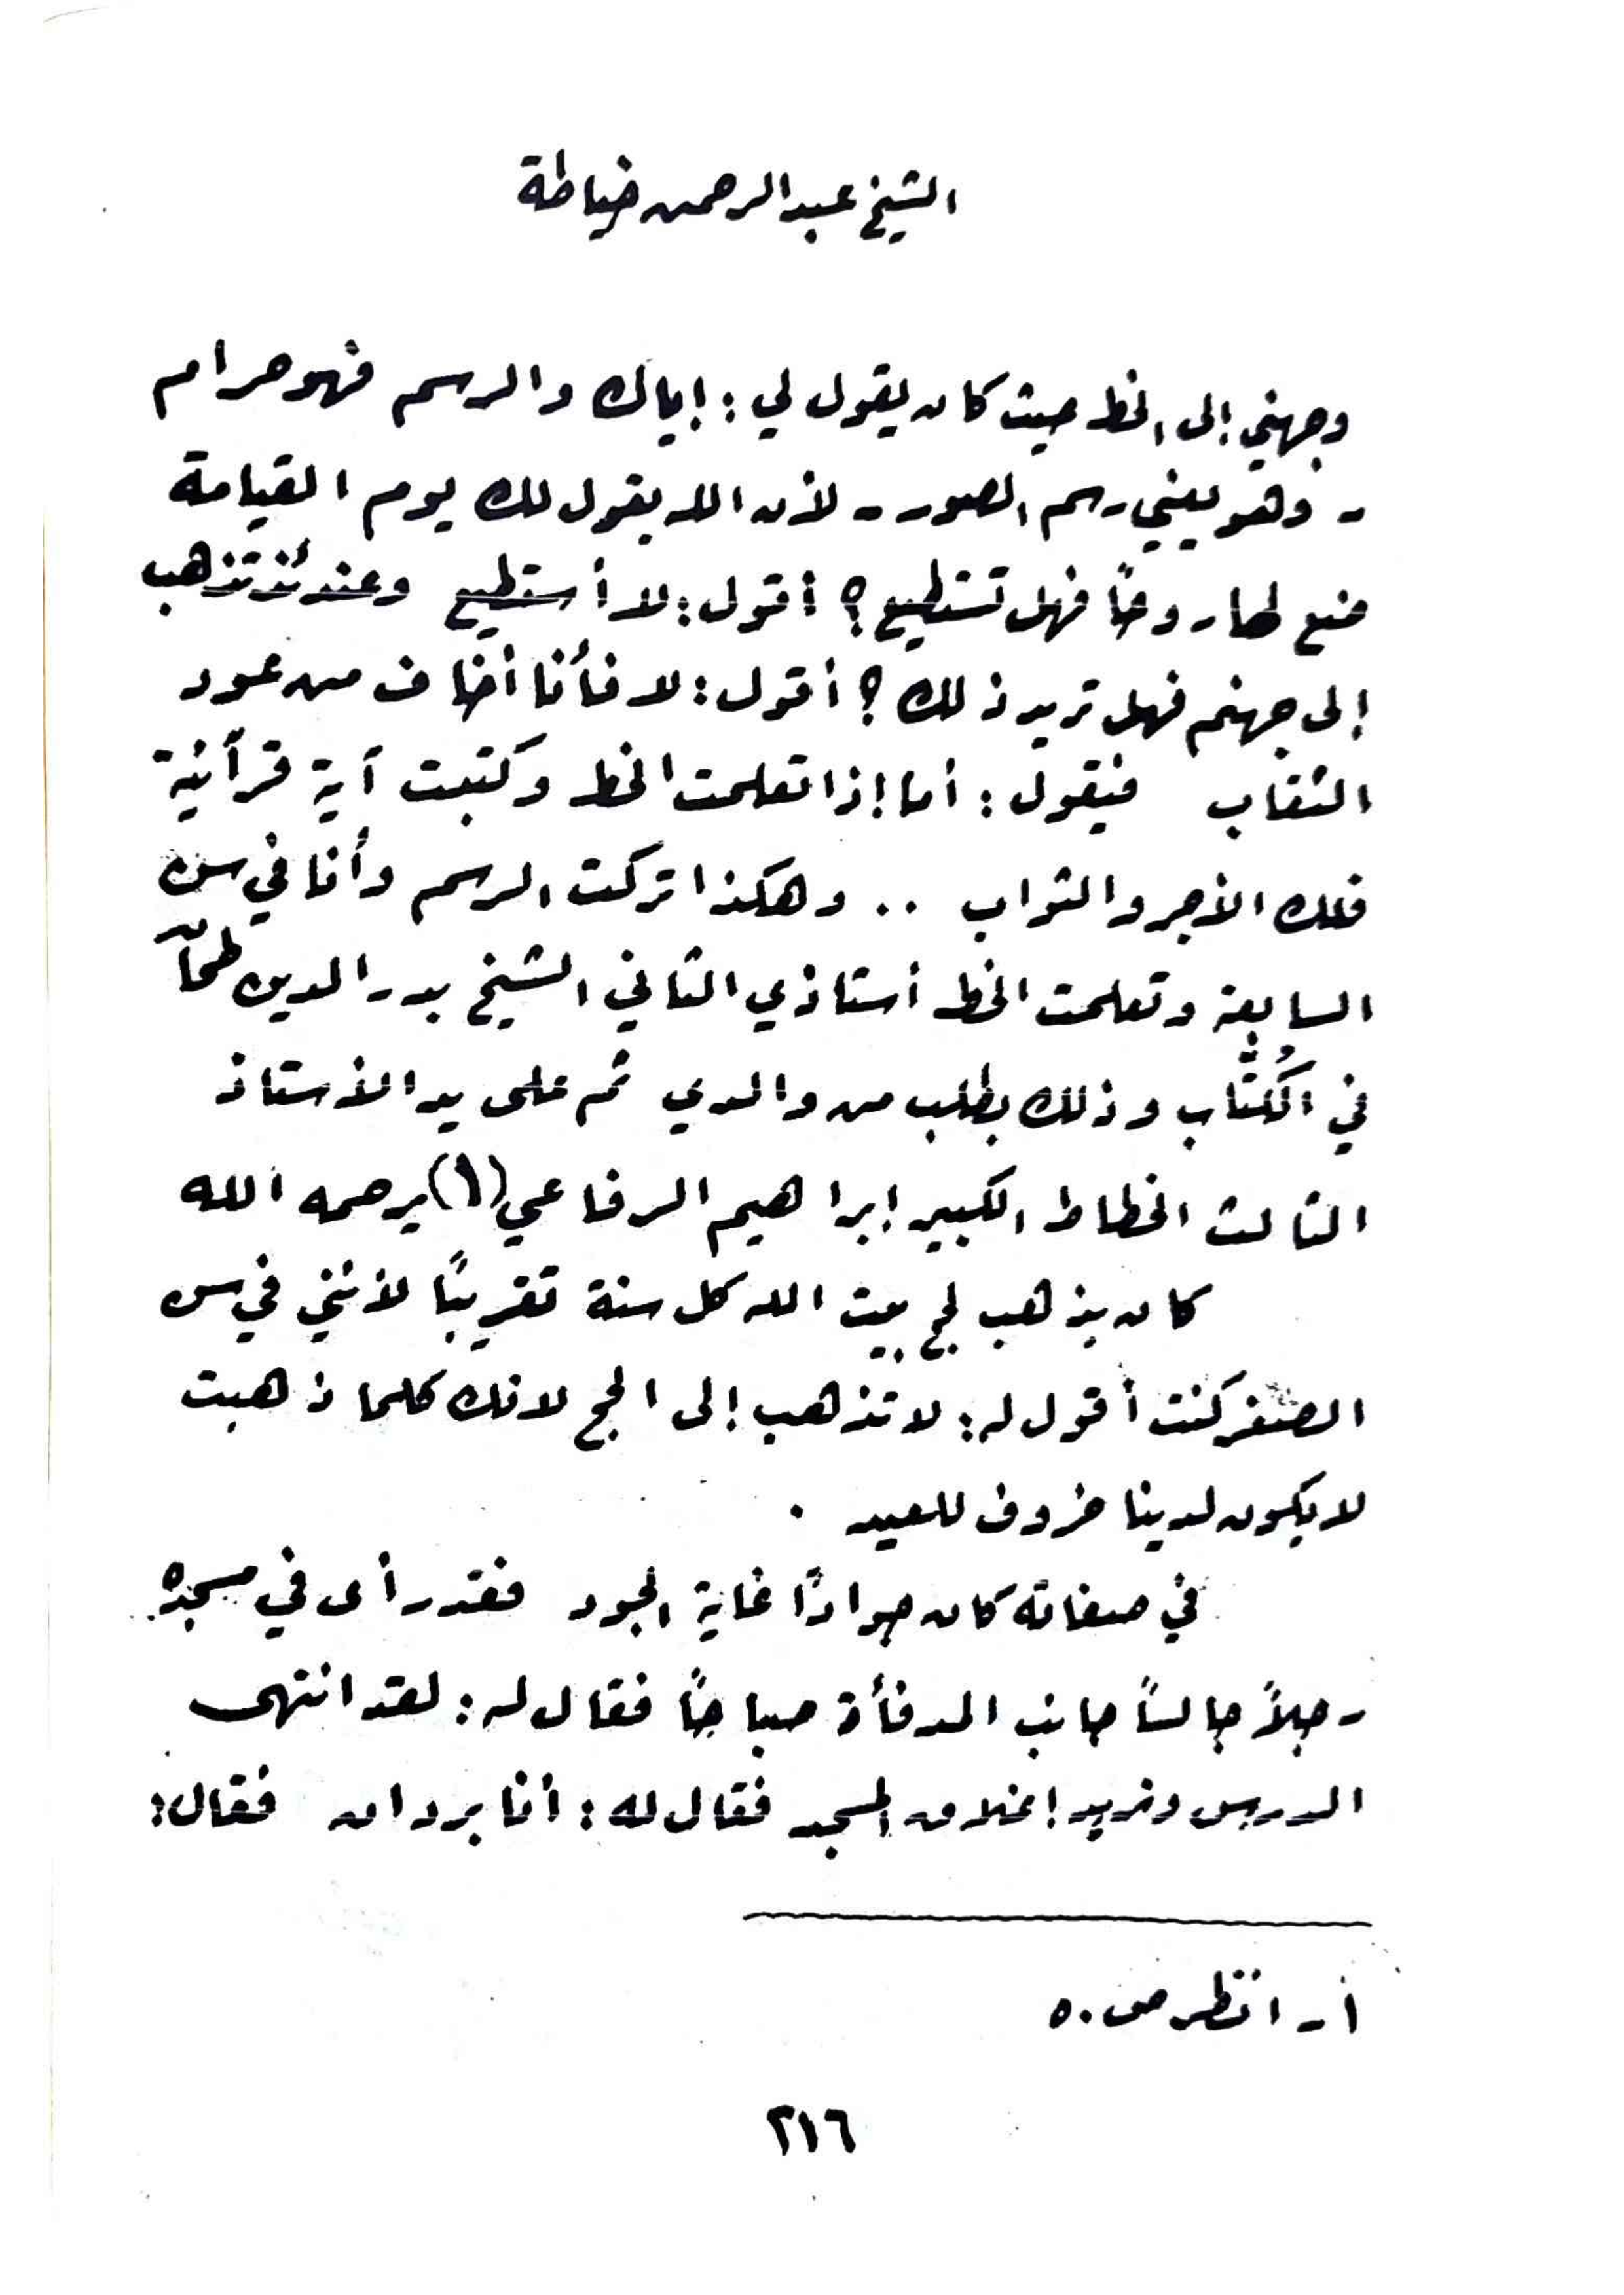 الشيخ عبد الرحمن خياطة
وجهني إلى الخط حيث كان يقول لي : إياك والرسم فهو حرام
- وهو يعني رسم الصور - لأن الله يقول لك يوم القيامة
ضع لها روحًا فهل تستطيع ؟ أقول : لا أستطيع وعندئذ تذهب
إلى جهنم فهل تريد ذلك ؟ أقول : لا فأنا أخاف من عود
الثقاب فيقول : أما إذا تعلمت الخط وكتبت آية قرآنية
فلك الأجر والثواب .. وهكذا تركت الرسم وأنا في سن
السابعة وتعلمت الخط أستاذي الثاني الشيخ بدر الدين طحان
في الكُتَّاب وذلك بطلب من والدي ثم على يد الأستاذ
الثالث الخطاط الكبير إبراهيم الرفاعي (١) يرحمه الله
كان يذهب لحج بيت الله كل سنة تقريبًا لأنني في سن
الصغر كنت أقول له : لا تذهب إلى الحج لانك كلما ذهبت
لا يكون لدينا خروف للعيد .
في صفاته كان جوادًا غاية الجود فقد رأى في مسجده
رجلاً جالسًا جانب المدفأة صباحًا فقال له : لقد انتهى
الدرس ونريد إغلاق المسجد فقال له : أنا بردان فقال :
١ - انظر ص ٥٠
٢١٦